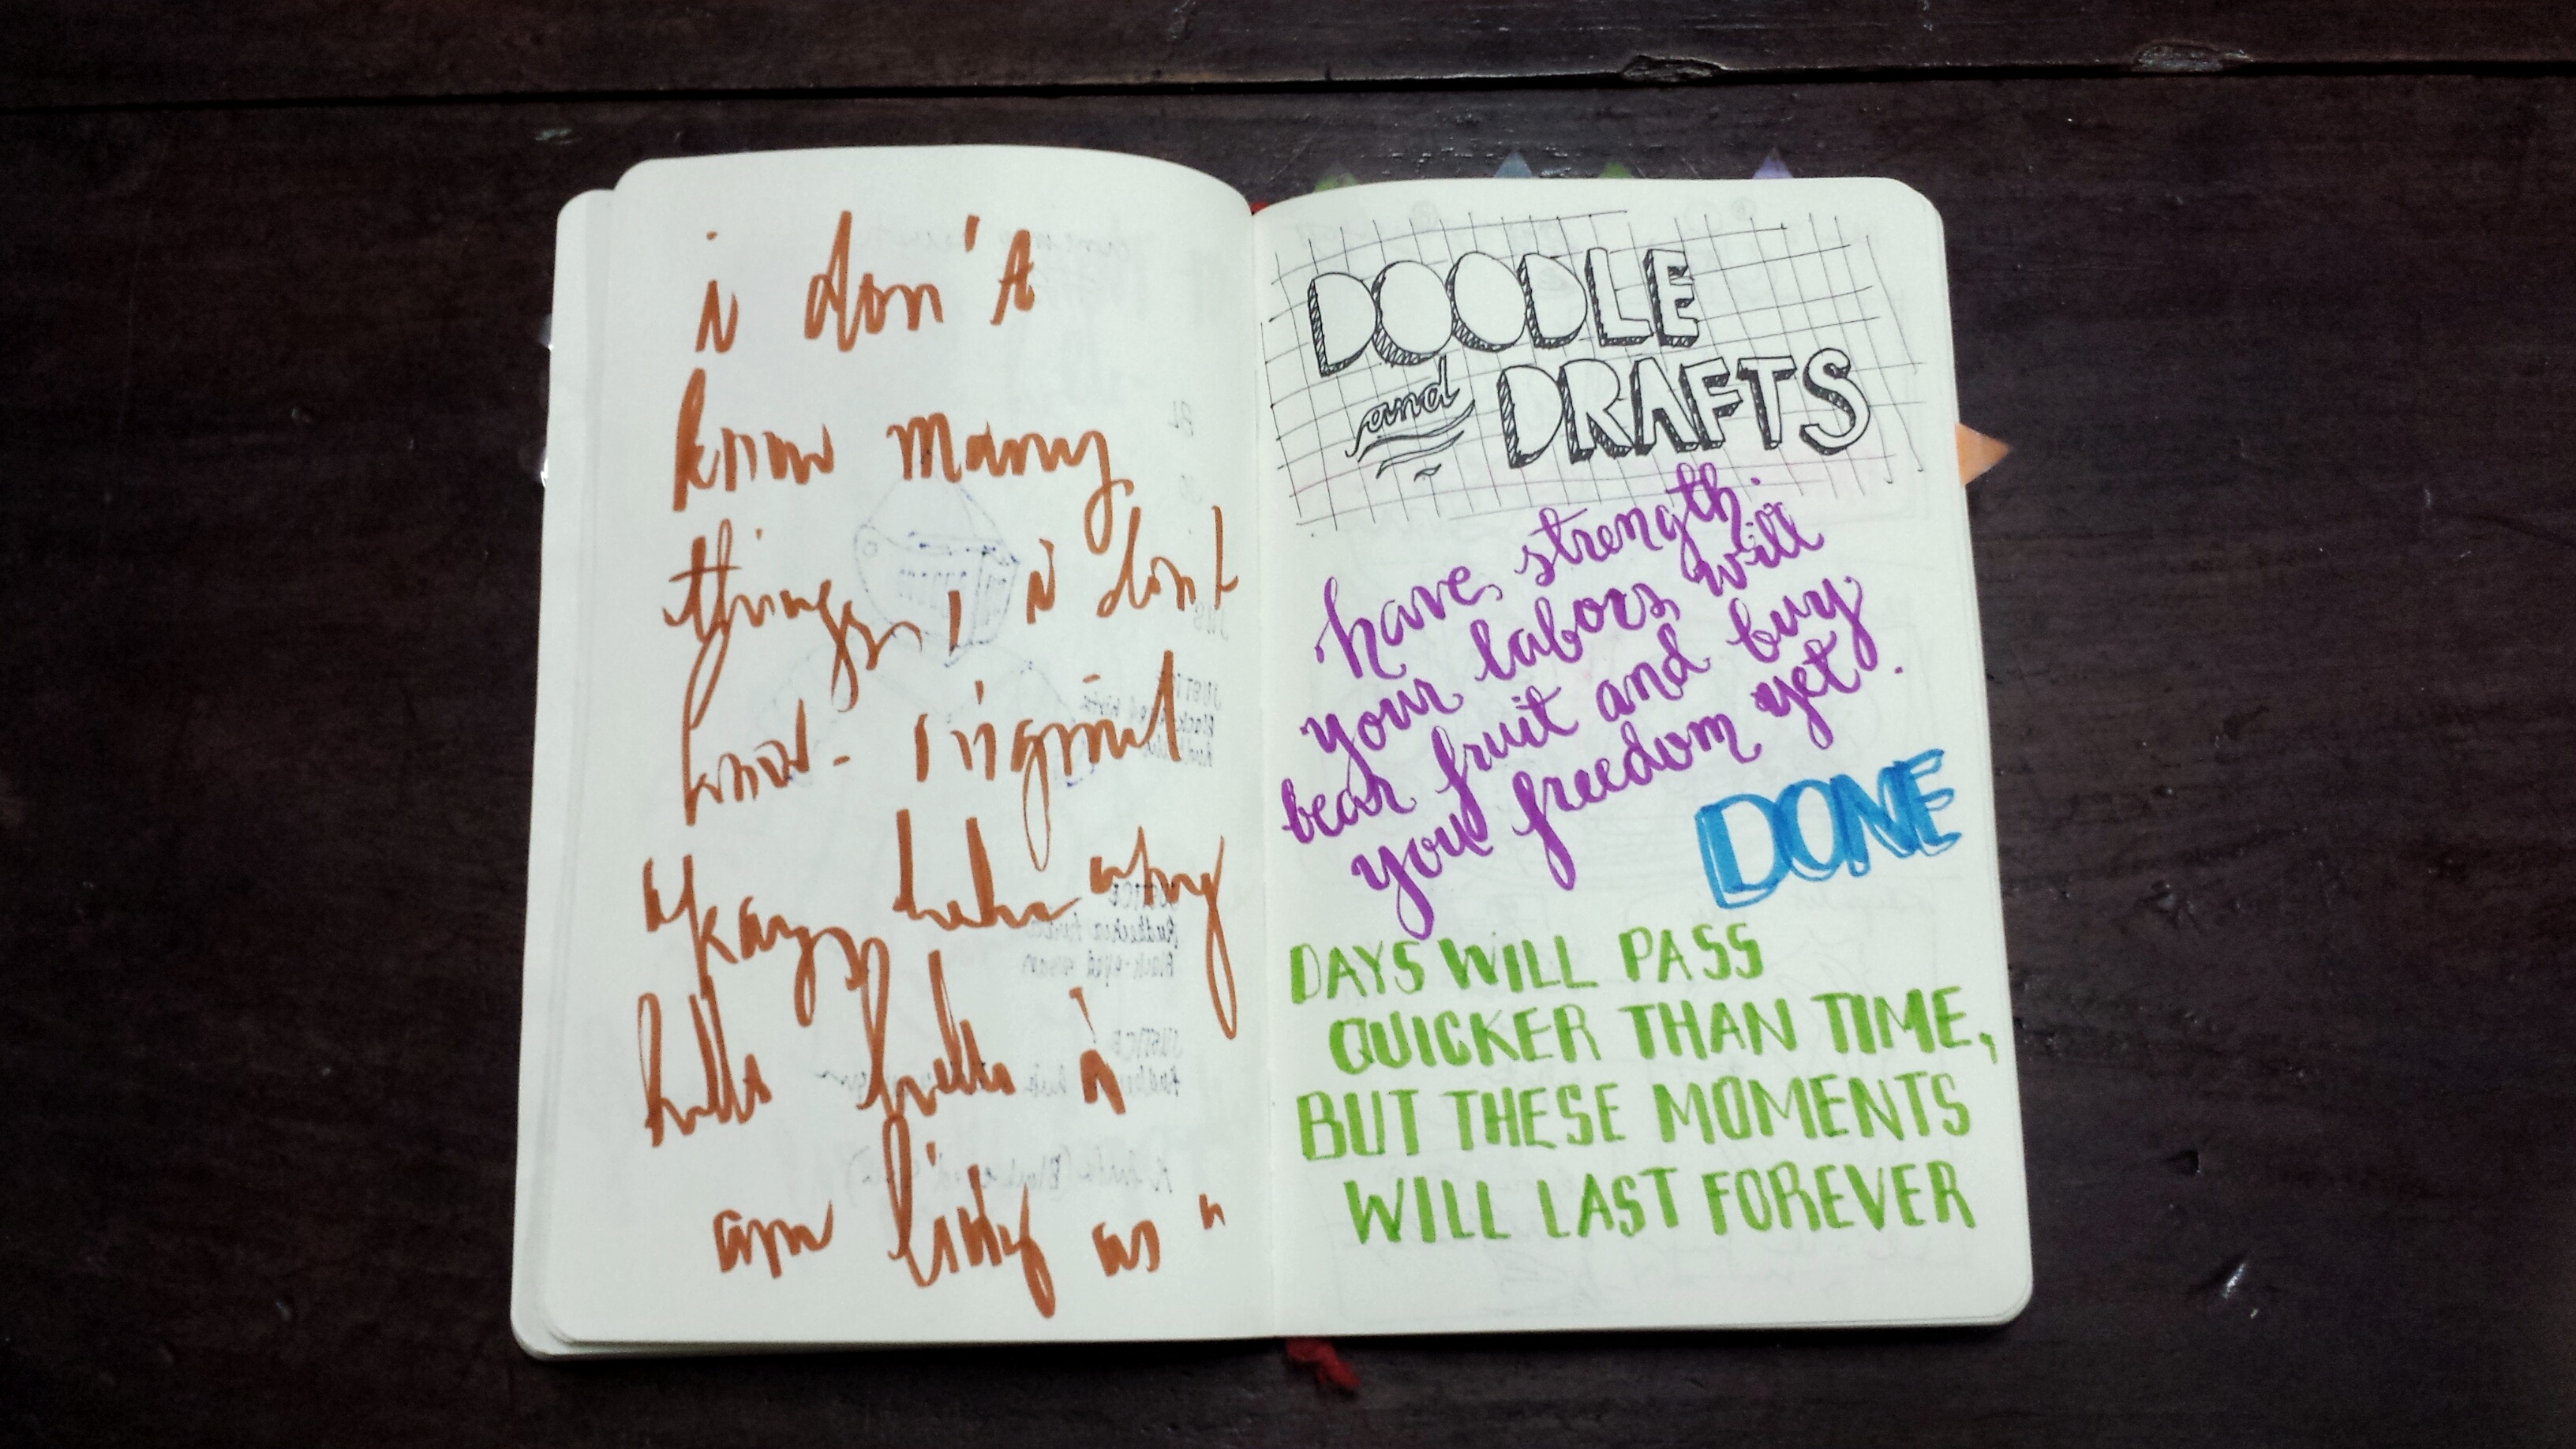 i don't
know many
things, i don't
know.
okay, haha why
hello hello i
am living as "
DOODLE
and DRAFTS
have strength.
your labors will
bear fruit and buy
you freedom yet.
DONE
DAYS WILL PASS
QUICKER THAN TIME,
BUT THESE MOMENTS
WILL LAST FOREVER